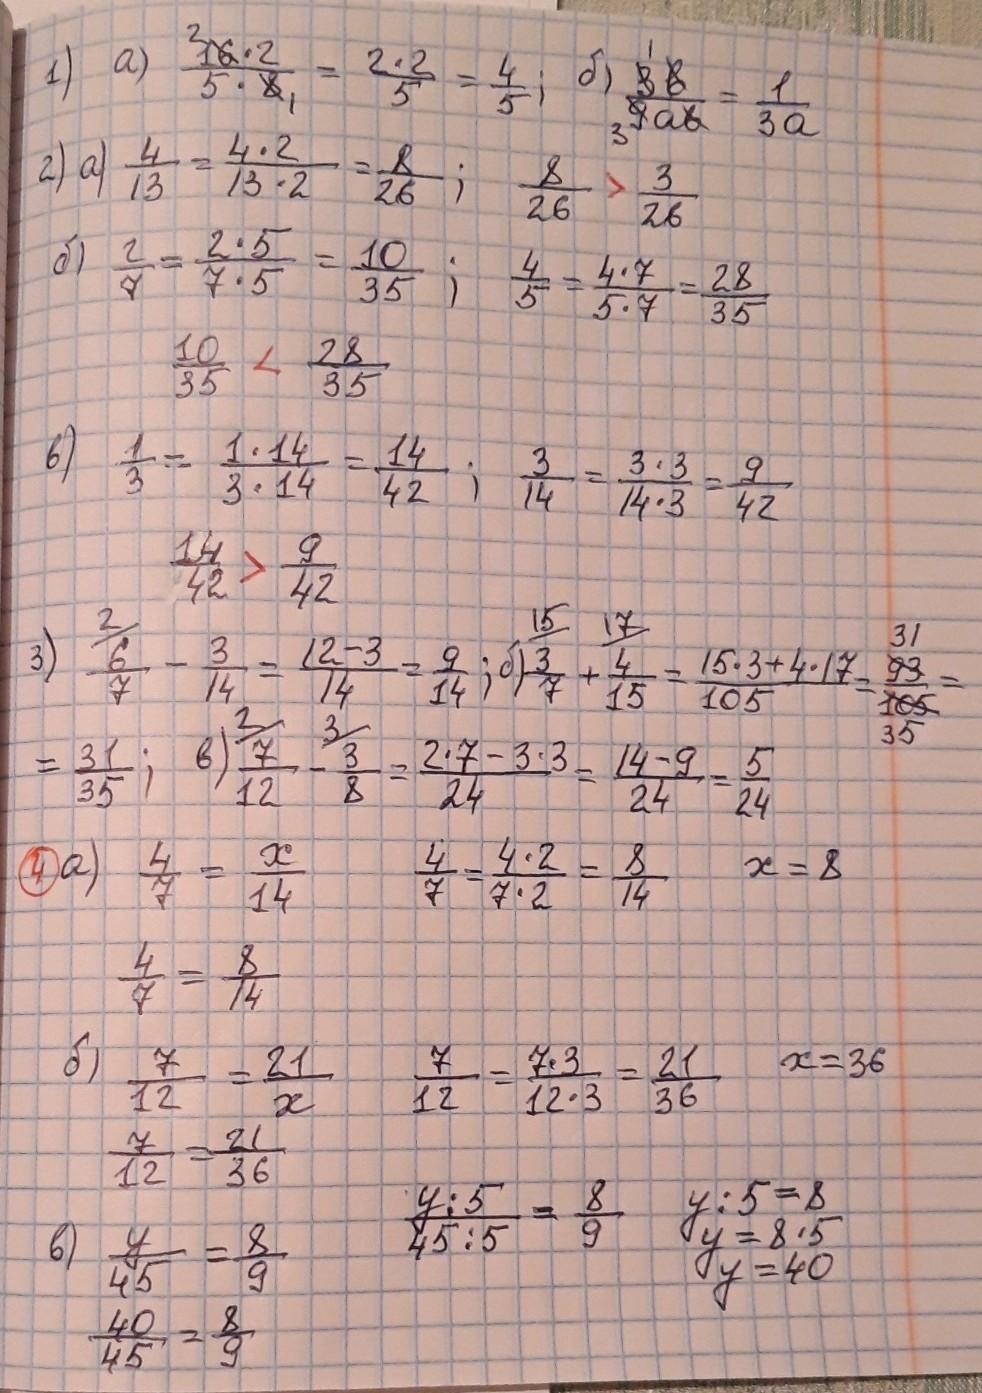 1) а) 16·2/5·8 = 2·2/5 = 4/5; б) 3в/9ав = 1/3а
2) а) 4/13 = 4·2/13·2 = 8/26; 8/26 > 3/26
б) 2/7 = 2·5/7·5 = 10/35; 4/5 = 4·7/5·7 = 28/35
10/35 < 28/35
в) 1/3 = 1·14/3·14 = 14/42; 3/14 = 3·3/14·3 = 9/42
14/42 > 9/42
3) 2/ 6/7 - 3/14 = 12-3/14 = 9/14; б) 15/ 3/7 + 17/ 4/15 = 15·3+4·17/105 = 93/105 31 35 =
= 31/35; в) 2/ 7/12 - 3/ 3/8 = 2·7-3·3/24 = 14-9/24 = 5/24
4 а) 4/7 = x/14 4/7 = 4·2/7·2 = 8/14 x = 8
4/7 = 8/14
б) 7/12 = 21/x 7/12 = 7·3/12·3 = 21/36 x = 36
7/12 = 21/36
в) y/45 = 8/9 y:5/45:5 = 8/9 y:5 = 8
y = 8·5
y = 40
40/45 = 8/9